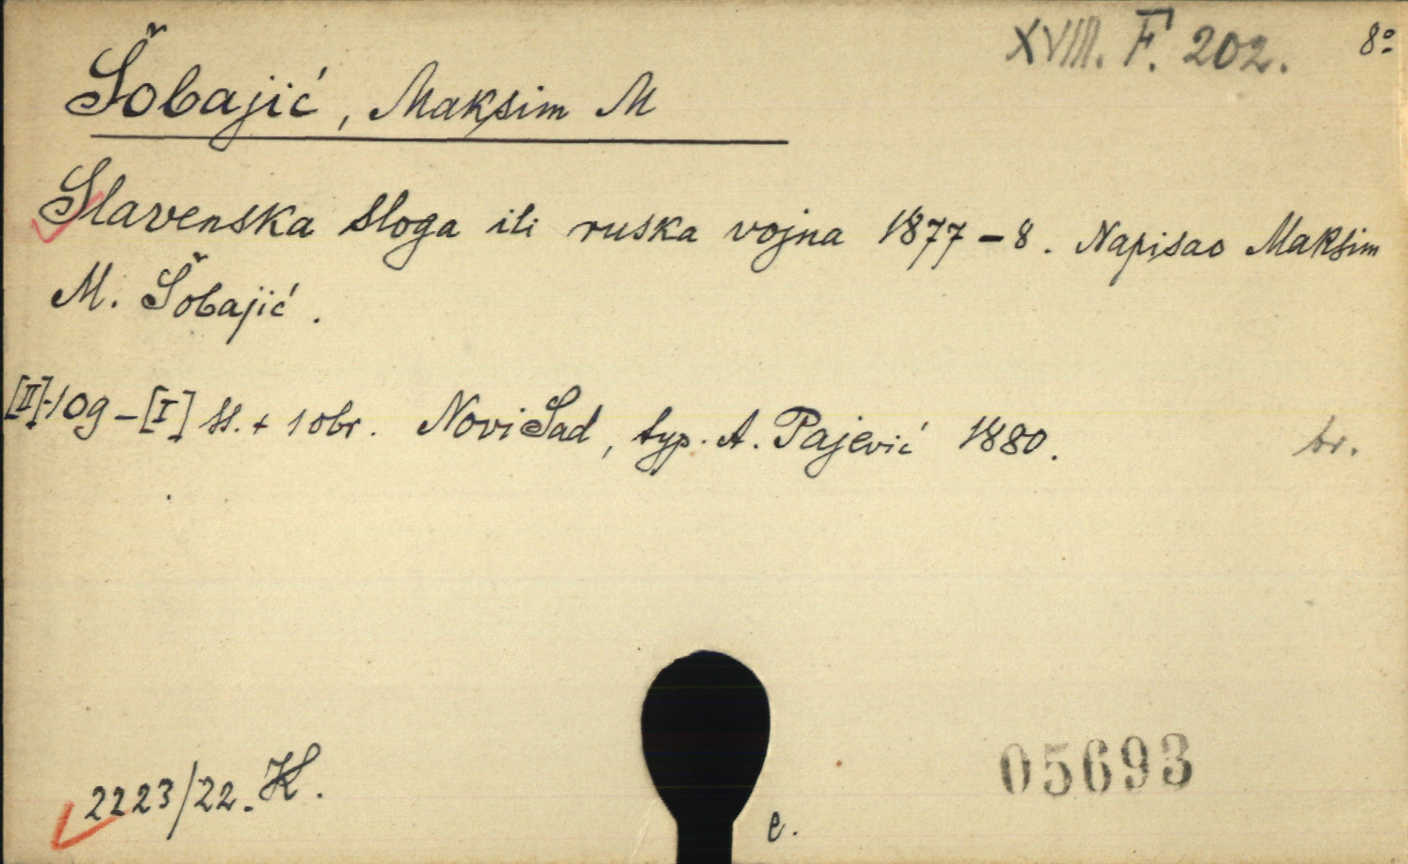 XVIII. F. 202. 8°
Šobajić, Maksim M
Slavenska sloga ili ruska vojna 1877-8. Napisao Maksim
M. Šobajić.
[II]-109-[I] ss. + 1 obr. Novi Sad, typ. A. Pajević 1880. br.
05693
2223/22. K.
e.